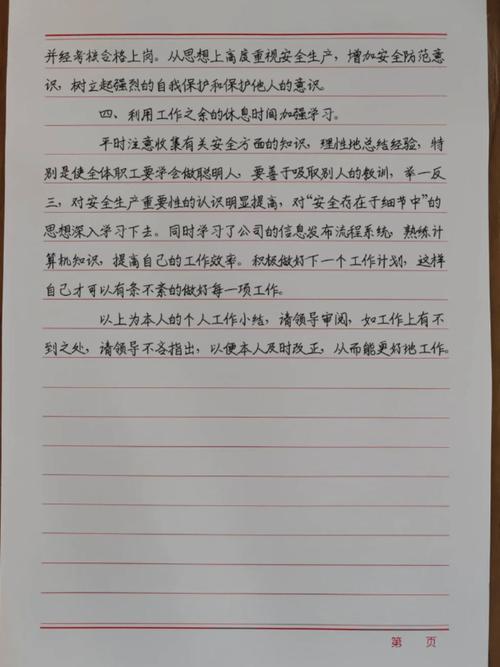 并经考核合格上岗。从思想上高度重视安全生产，增加安全防范意
识，树立起强烈的自我保护和保护他人的意识。
四、利用工作之余的休息时间加强学习。
平时注意收集有关安全方面的知识，理性地总结经验，特
别是使全体职工要学会做聪明人，要善于吸取别人的教训，举一反
三，对安全生产重要性的认识明显提高，对“安全存在于细节中”的
思想深入学习下去。同时学习了公司的信息发布流程系统，熟练计
算机知识，提高自己的工作效率。积极做好下一个工作计划，这样
自己才可以有条不紊的做好每一项工作。
以上为本人的个人工作小结，请领导审阅，如工作上有不
到之处，请领导不吝指出，以便本人及时改正，从而能更好地工作。
第 页